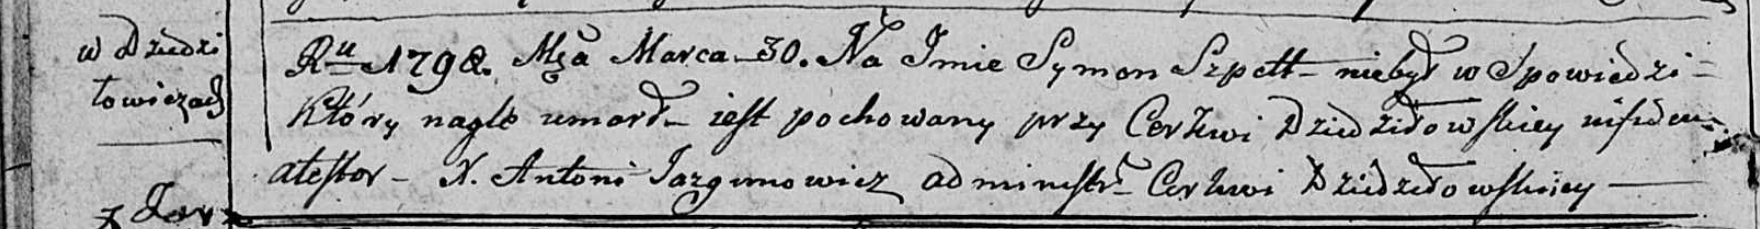 w Dziedzi
łowiczach
Ru 1798. Mca Marca 30. Na Jmie Symon Szpett - niebył w Spowiedzi -
Który nagle umarł - iest pochowany przy Cerkwi Dziedziłowskiey
atestor - X. Antoni Jazgunowicz administr. Cerkwi Dziedziłowskiey